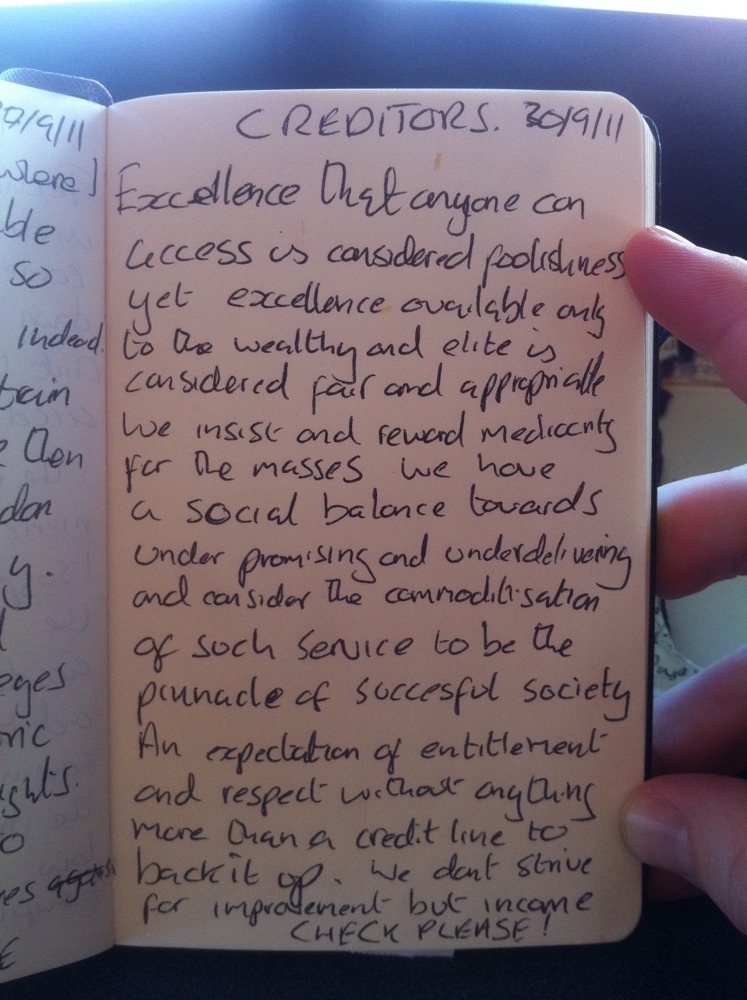 27/9/11
where I
ble
so
indeed.
train
then
don
y.
eyes
ric
ights.
to
es
CREDITORS. 30/9/11
Excellence that anyone can
access is considered foolishness
yet excellence available only
to the wealthy and elite is
considered fair and appropriate
We insist and reward mediocrity
for the masses we have
a social balance towards
under promising and underdelivering
and consider the commoditisation
of such service to be the
pinnacle of succesful society
An expectation of entitlement
and respect without anything
more than a credit line to
back it up. We dont strive
for improvement but income
CHECK PLEASE!